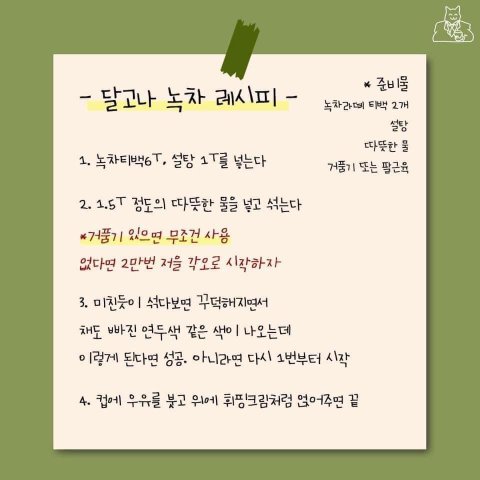 - 달고나 녹차 레시피 -
* 준비물
녹차라떼 티백 2개
설탕
따뜻한 물
거품기 또는 팔근육
1. 녹차티백6T, 설탕 1T를 넣는다
2. 1.5T 정도의 따뜻한 물을 넣고 섞는다
*거품기 있으면 무조건 사용
없다면 2만번 저을 각오로 시작하자
3. 미친듯이 섞다보면 꾸덕해지면서
채도 빠진 연두색 같은 색이 나오는데
이렇게 된다면 성공. 아니라면 다시 1번부터 시작
4. 컵에 우유를 붓고 위에 휘핑크림처럼 얹어주면 끝